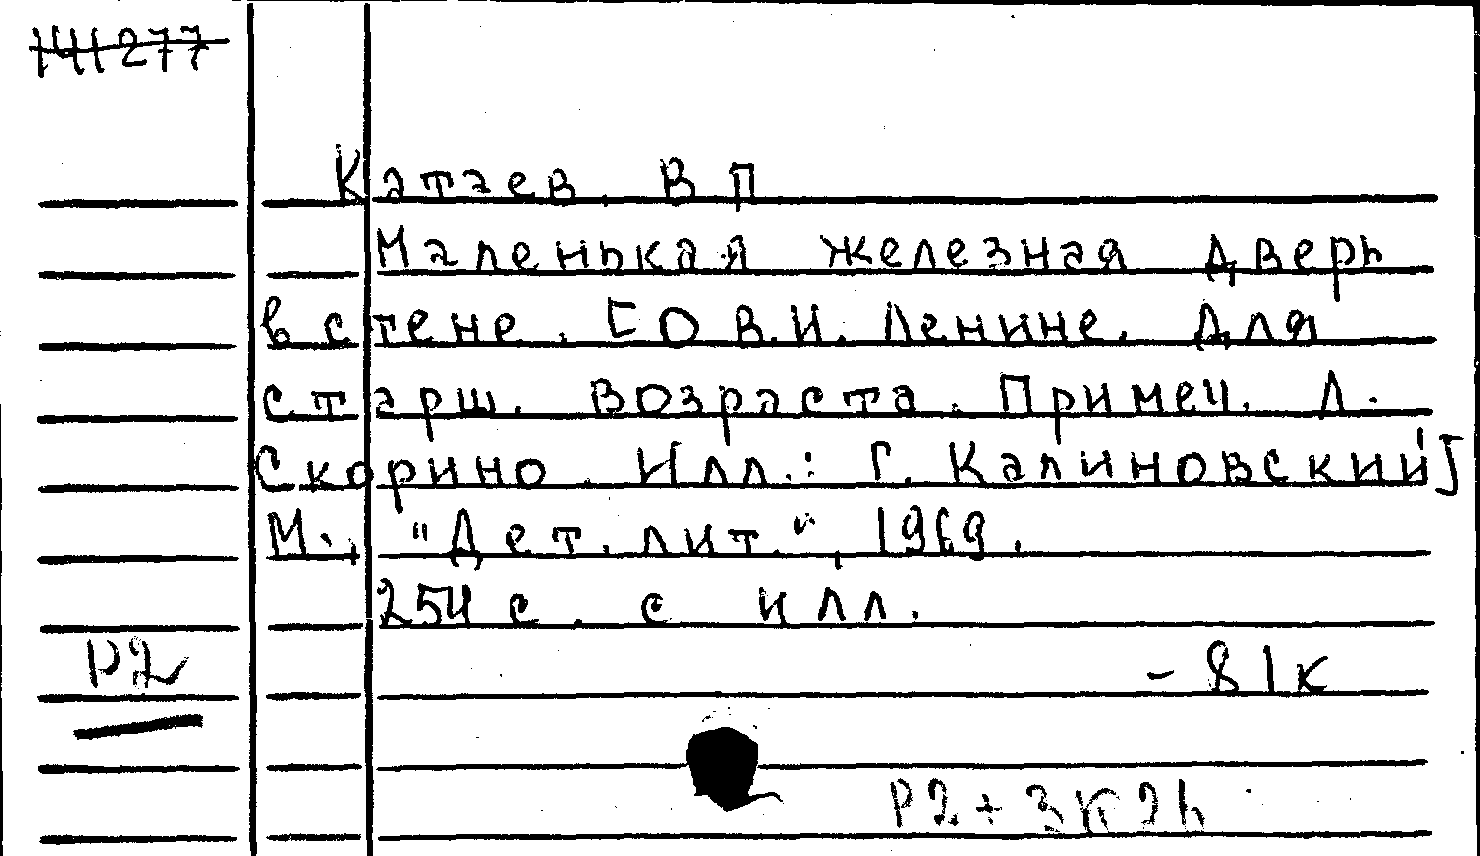 141277
Катаев. В П
Маленькая железная дверь
в стене. [О В.И. Ленине. Для
старш. возраста. Примеч. Л.
Скорино. Илл.: Г. Калиновский]
М., "Дет. лит.", 1969.
254 с. с илл.
Р2
- 81к
Р2+3К2